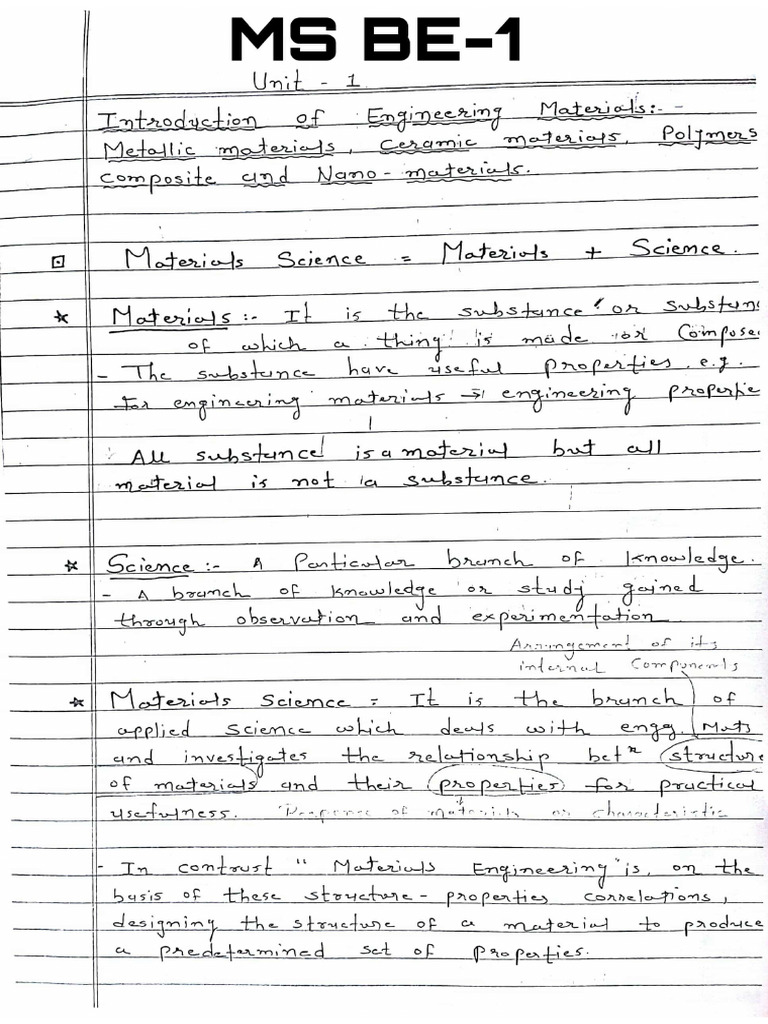 MS BE-1
Unit - 1
Introduction of Engineering Materials:- -
Metallic materials, Ceramic materials, Polymers
Composite and Nano-materials.
Materials Science = Materials + Science.
Materials :- It is the substance or substan
of which a thing is made or Compose
- The substance have useful properties. e.g.
for engineering materials → engineering propertie
All substance is a material but all
material is not a substance.
Science :- A Particular branch of knowledge.
- A branch of knowledge or study gained
through observation and experimentation
Arrangement of its
internal Components
Materials Science = It is the branch of
applied science which deals with engg. Mats
and investigates the relationship betn structure
of materials and their properties for practical
usefulness. Response of materials or characteristic
- In contrast " Materials Engineering" is, on the
basis of these structure - properties correlations,
designing the structure of a material to produce
a predetermined set of properties.